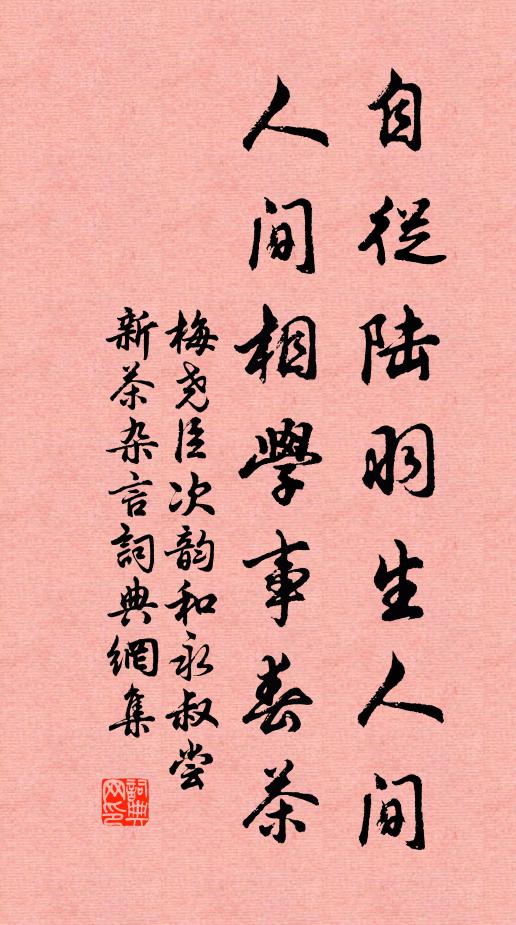 自從陆羽生人间
人间相學事春茶
梅尧臣次韵和永叔尝
新茶杂言詞典網集
詞典网印